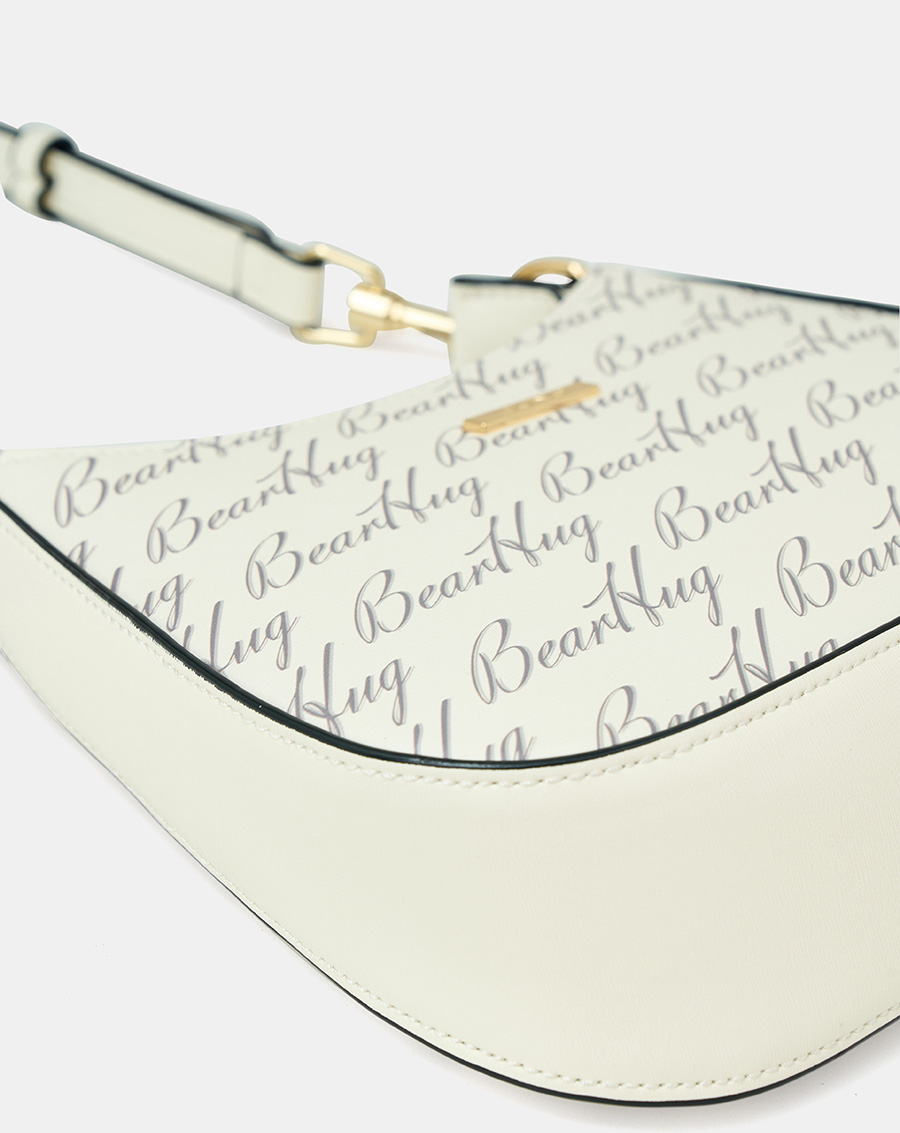 BearHug BearHug
BearHug BearHug BearHug
BearHug BearHug BearHug
BearHug BearHug BearHug
BearHug BearHug
Hug BearHug
Hug